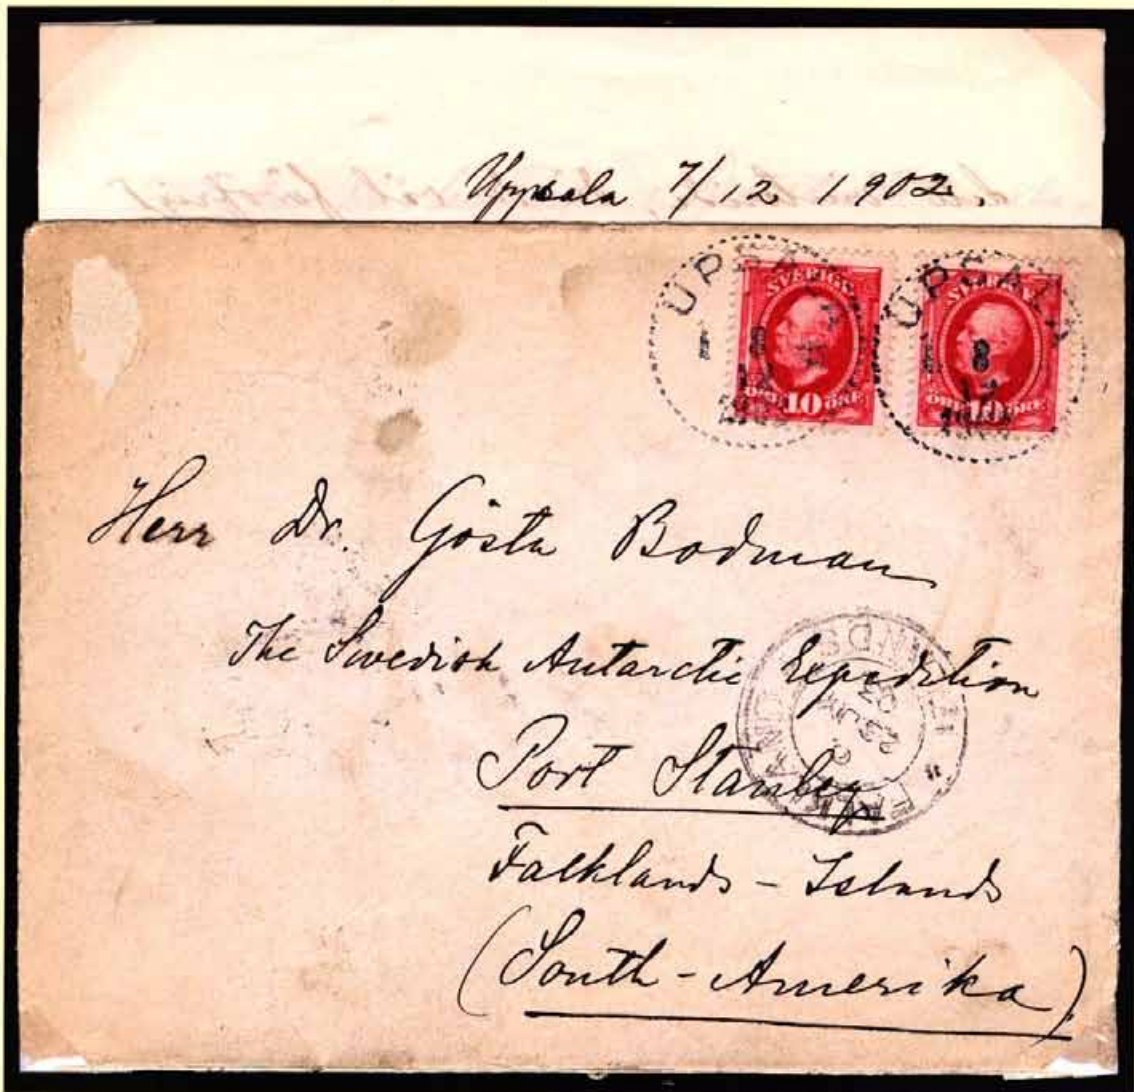 Uppsala 7/12 1902.
UPSALA
8
12
SVERIGE
10 ÖRE
ÖRE
UPSALA
8
12
SVERIGE
ÖRE 10 ÖRE
Herr Dr. Gösta Bodman
The Swedish Antarctic Expedition
Port Stanley
Falklands - Islands
(South - Amerika)
FALKLAND ISLANDS
03